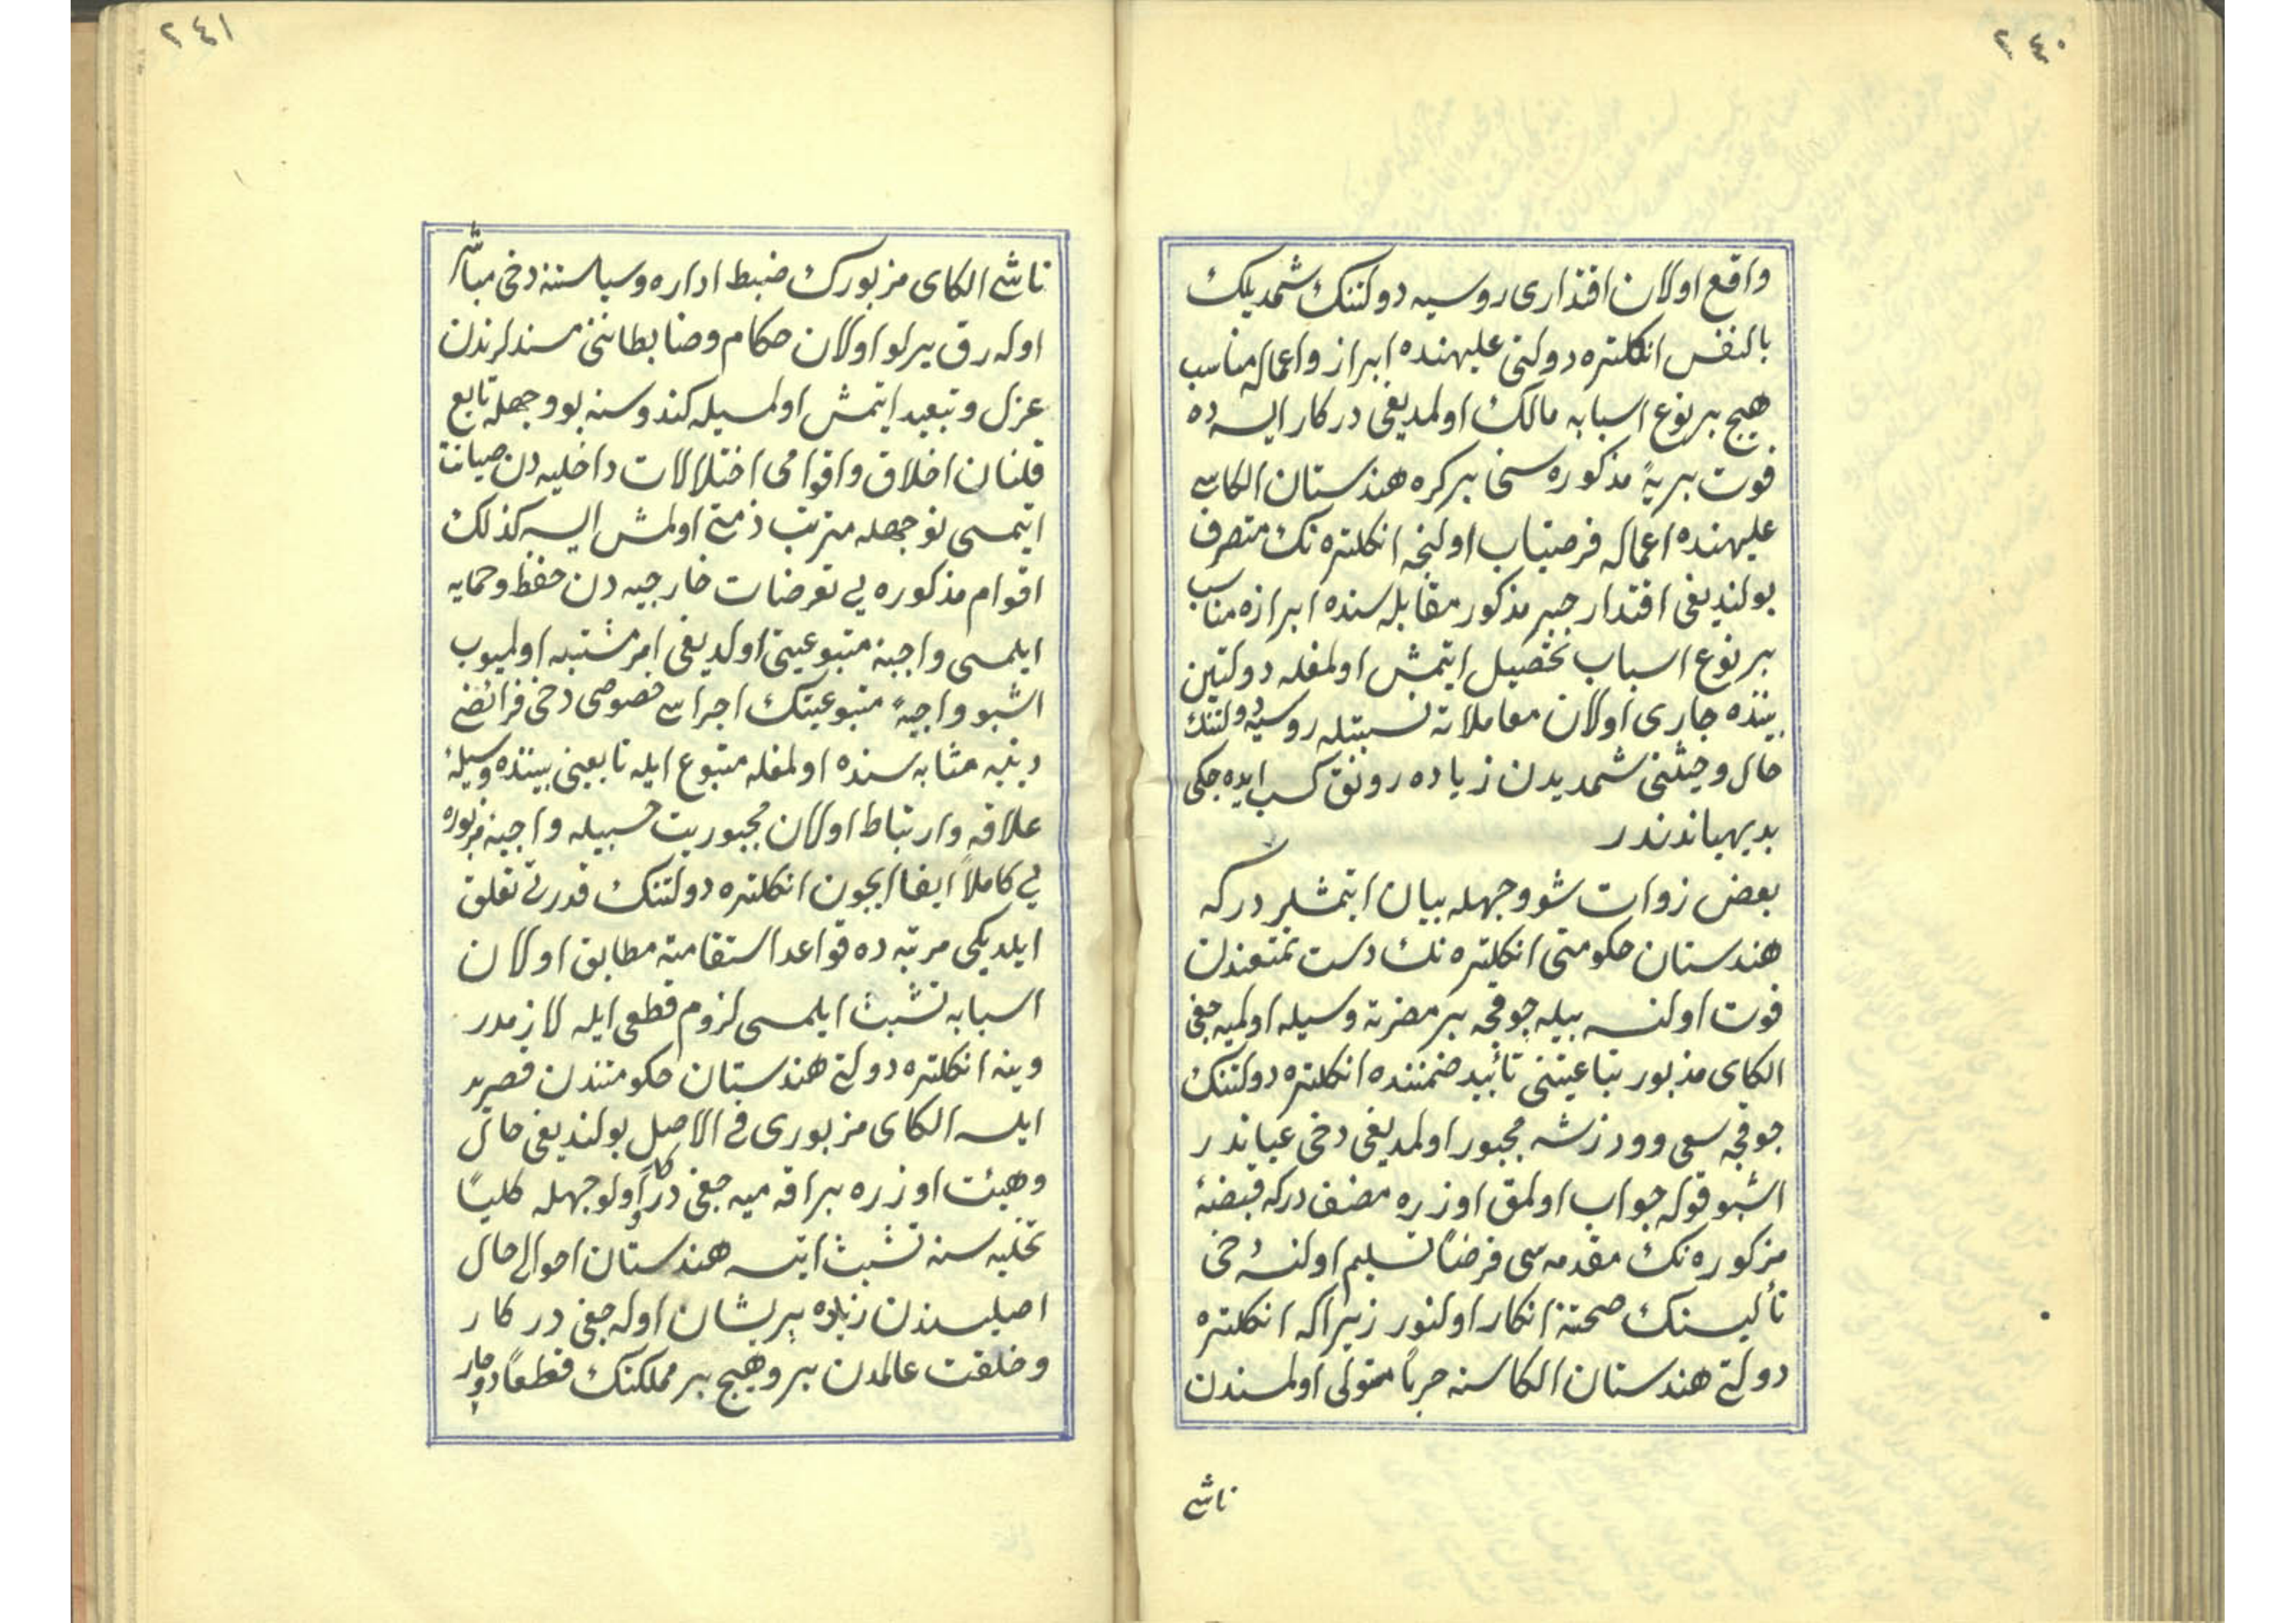 ٢٤٠
واقع اولان اقتداری روسیه دولتنك شمدیلك
بالنفس انكلتره دولتی علیهنده ابراز واعماله مناسب
هیچ بر نوع اسبابه مالك اولمدیغی دركار ایسه ده
قوت بریهٔ مذكوره سنی بر كره هندستان الكاسی
علیهنده اعماله فرصتیاب اولنجه انكلتره نك متصرف
بولندیغی اقتدار جبر مذكور مقابله سنده ابرازه مناسب
بر نوع اسباب تحصیل ایتمش اولمغله دولتین
بیننده جاری اولان معاملاته نسبتله روسیه دولتنك
حال وحیثنی شمدیدن زیاده رونق كسب ایده جكی
بدیهیاتدندر
بعض زوات شو وجهله بیان ایتمشلر در كه
هندستان حكومتی انكلتره نك دست تمتعندن
فوت اولنسه بیله چوقجه بر مضرته وسیله اولمیه جغی
الكای مذبور تباعیتنی تأیید ضمننده انكلتره دولتنك
چوقجه سعی وورزشه مجبور اولمدیغی دخی عیاندر
اشبو قوله جواب اولمق اوزره مصنف دركه قبضهٔ
مزكوره نك مقدمه سی فرضاً تسلیم اولنسه دخی
تألیسنك صحتنه انكار اولنور زیرا كه انكلتره
دولتی هندستان الكاسنه حرباً متولی اولمسندن
ناشی
٢٤١
ناشی الكای مزبورك ضبط اداره وسیاستنه دخی مباشر
اوله رق یرلو اولان حكام وضابطاننی مسندلرندن
عزل وتبعید ایتمش اولمسیله كندوسنه بو وجهله تابع
قلنان اخلاق واقوامی اختلالات داخلیه دن صیانت
ایتمسی نوجهله مترتب ذمتی اولمش ایسه كذلك
اقوام مذكوره یی تعرضات خارجیه دن حفظ وحمایه
ایلمسی واجبهٔ متبوعیتی اولدیغی امر مشتبه اولمیوب
اشبو واجبهٔ متبوعیتك اجراسی خصوصی دخی فرائض
دینیه مثابه سنده اولمغله متبوع ایله تابعینی بیننده وسیلهٔ
علاقه وارتباط اولان مجبوریت حسبیله واجبهٔ مزبوره
یی كاملاً ایفا ایچون انكلتره دولتنك قدرتی تعلق
ایلدیكی مرتبه ده قواعد استقامته مطابق اولان
اسبابه تشبث ایلمسی لزوم قطعی ایله لازمدر
وینه انكلتره دولتی هندستان حكومتندن قصرید
ایلسه الكای مزبوری فی الاصل بولندیغی حال
وهیئت اوزره براقه میه جغی دركار اولوجهله كلیاً
تخلیه سنه تشبث ایتسه هندستان احوالی حال
اصلیسندن زیاده پریشان اوله جغی دركار
وخلقت عالمدن برو هیچ بر مملكتك قطعاً دوچار